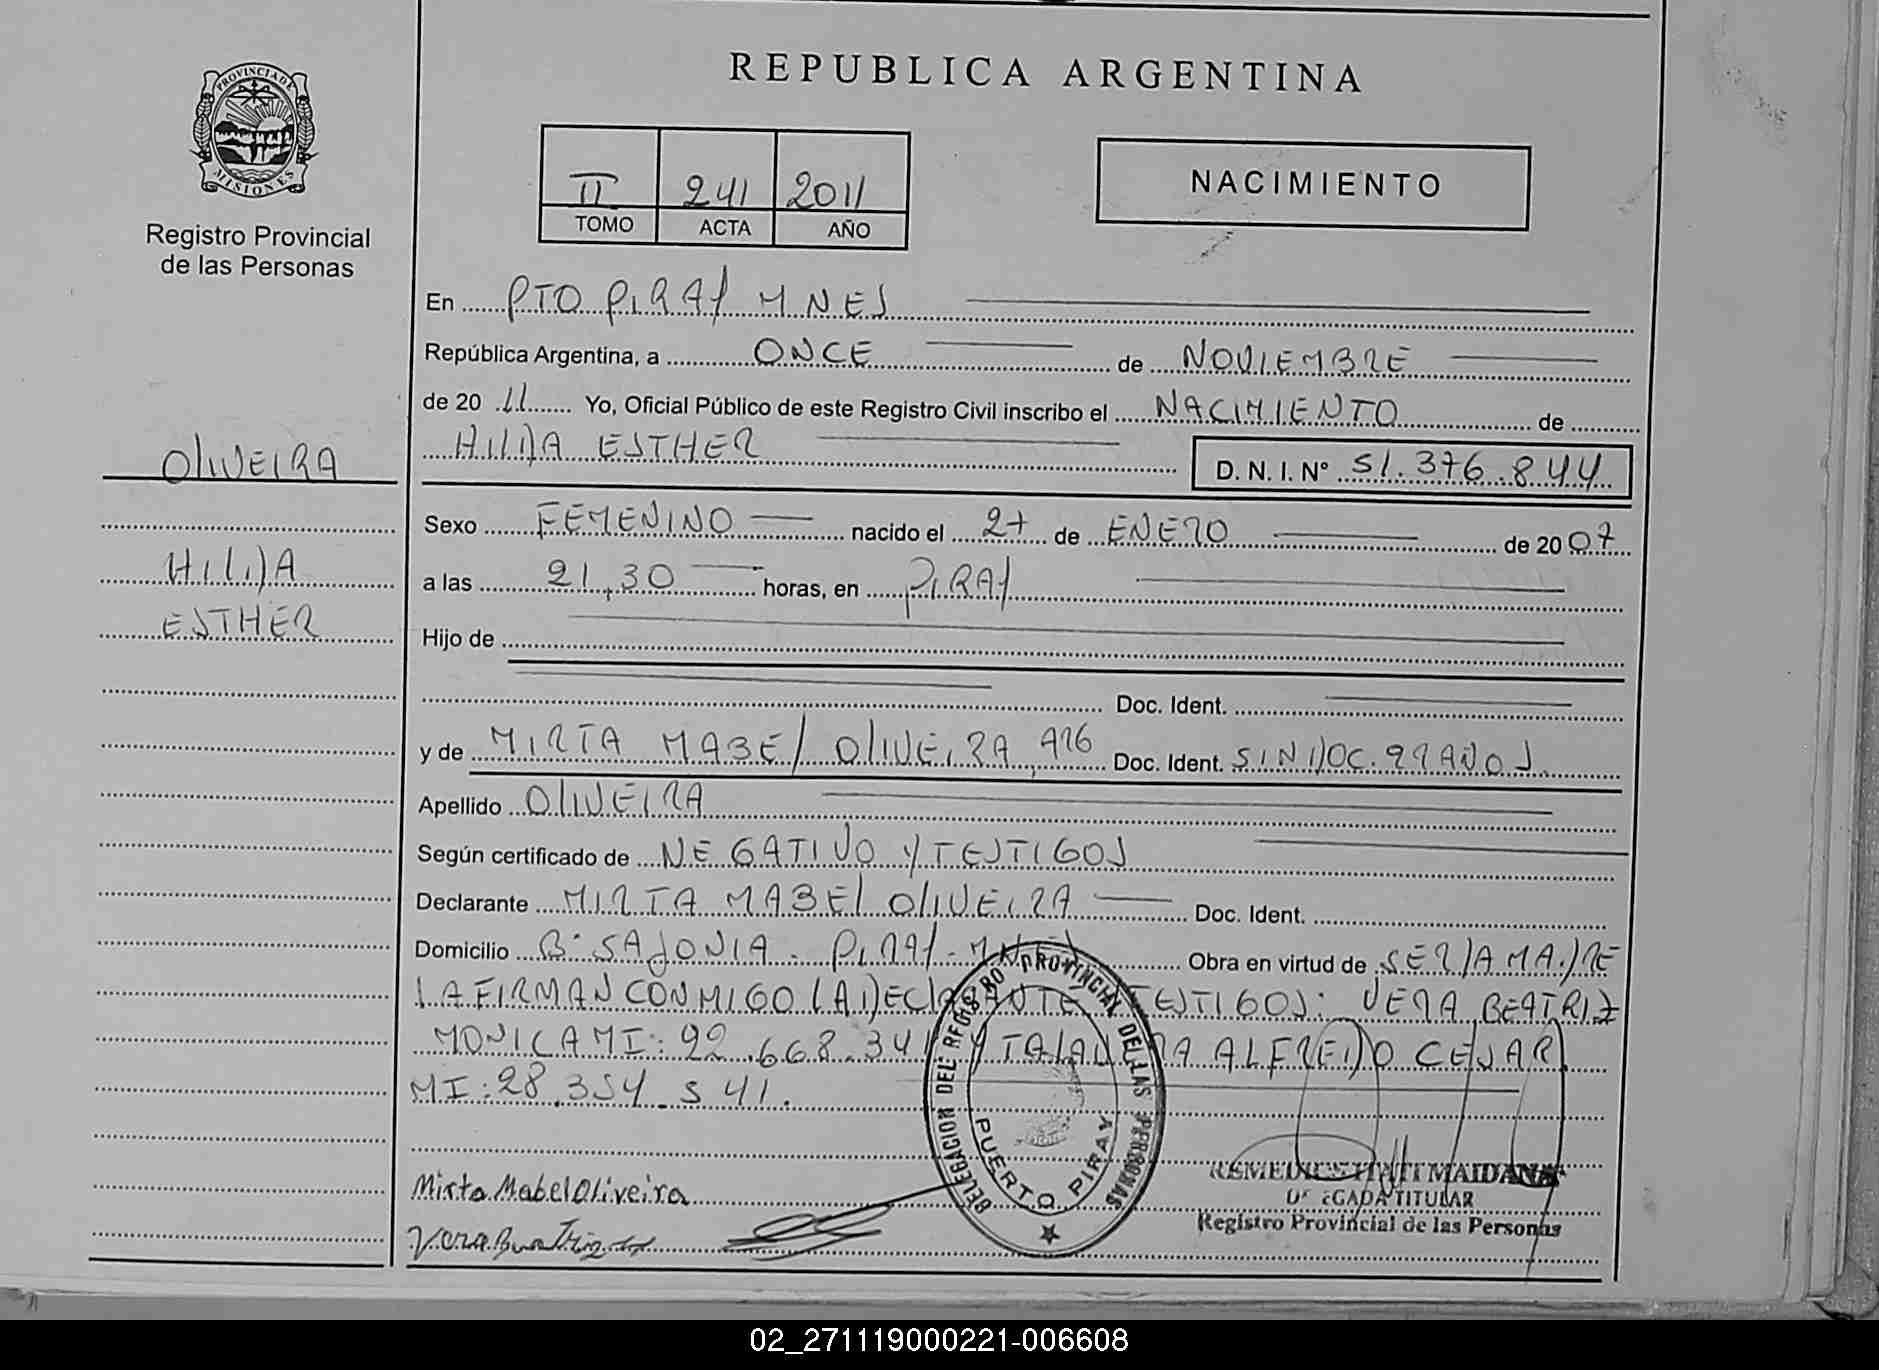 REPUBLICA ARGENTINA
PROVINCIA DE MISIONES
Registro Provincial
de las Personas
II 241 2011
TOMO ACTA AÑO
NACIMIENTO
En PTO PIRAY MNES
República Argentina, a ONCE de NOVIEMBRE
de 20 11 Yo, Oficial Público de este Registro Civil inscribo el NACIMIENTO de
HILDA ESTHER
D. N. I. Nº 51.376.844
OLIVEIRA
HILDA
ESTHER
Sexo FEMENINO nacido el 27 de ENERO de 20 07
a las 21,30 horas, en PIRAY
Hijo de
Doc. Ident.
y de MIRTA MABEL OLIVEIRA, ARG Doc. Ident. SIN DOC. 22 AÑOS
Apellido OLIVEIRA
Según certificado de NEGATIVO Y TESTIGOS
Declarante MIRTA MABEL OLIVEIRA Doc. Ident.
Domicilio Bº SAJONIA - PIRAY - MNES Obra en virtud de SER LA MADRE
LA FIRMAN CONMIGO LA DECLARANTE Y TESTIGOS: VERA BEATRIZ
MONICA MI: 92.668.341 Y ALFREDO CESAR
MI: 28.354.541.
DELEGACION DEL REGISTRO PROVINCIAL DE LAS PERSONAS
PUERTO PIRAY
Mirta Mabel Oliveira
Vera Beatriz
MAIDANA
DELEGADA TITULAR
Registro Provincial de las Personas
02_271119000221-006608